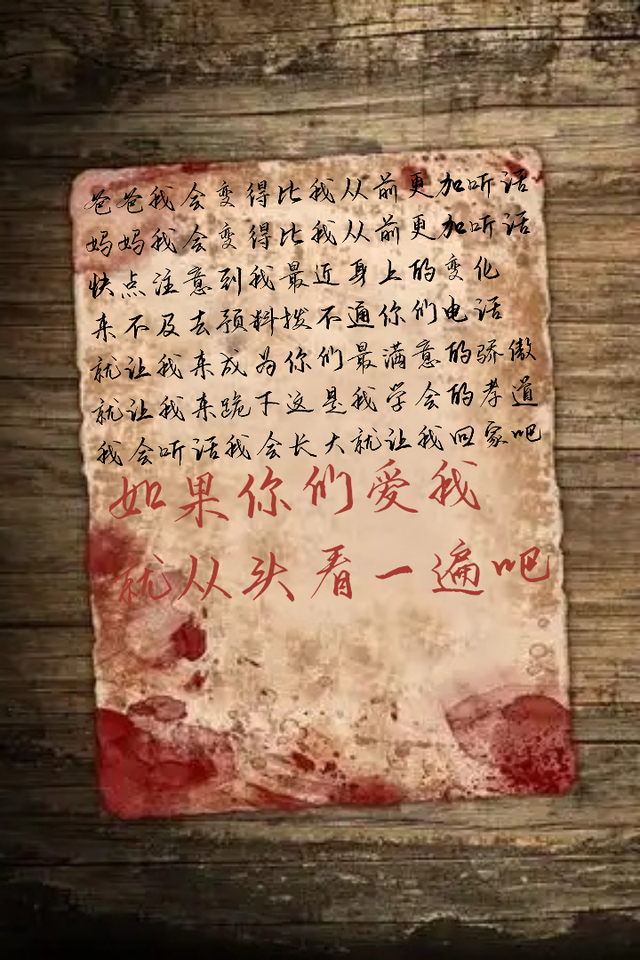 爸爸我会变得比我从前更加听话
妈妈我会变得比我从前更加听话
快点注意到我最近身上的变化
来不及去预料拨不通你们电话
就让我来成为你们最满意的骄傲
就让我来跪下这是我学会的孝道
我会听话我会长大就让我回家吧
如果你们爱我
就从头看一遍吧